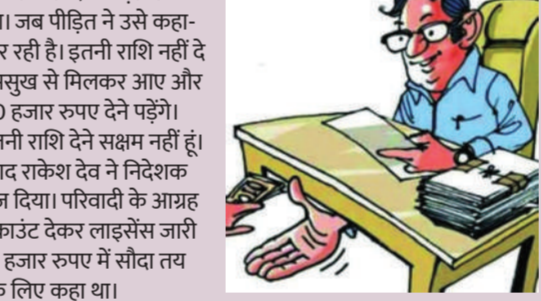 । जब पीड़ित ने उसे कहा-
र रही है। इतनी राशि नहीं दे
सुख से मिलकर आए और
हजार रुपए देने पड़ेंगे।
नी राशि देने सक्षम नहीं हूं।
ाद राकेश देव ने निदेशक
दिया। परिवादी के आग्रह
काउंट देकर लाइसेंस जारी
हजार रुपए में सौदा तय
लिए कहा था।